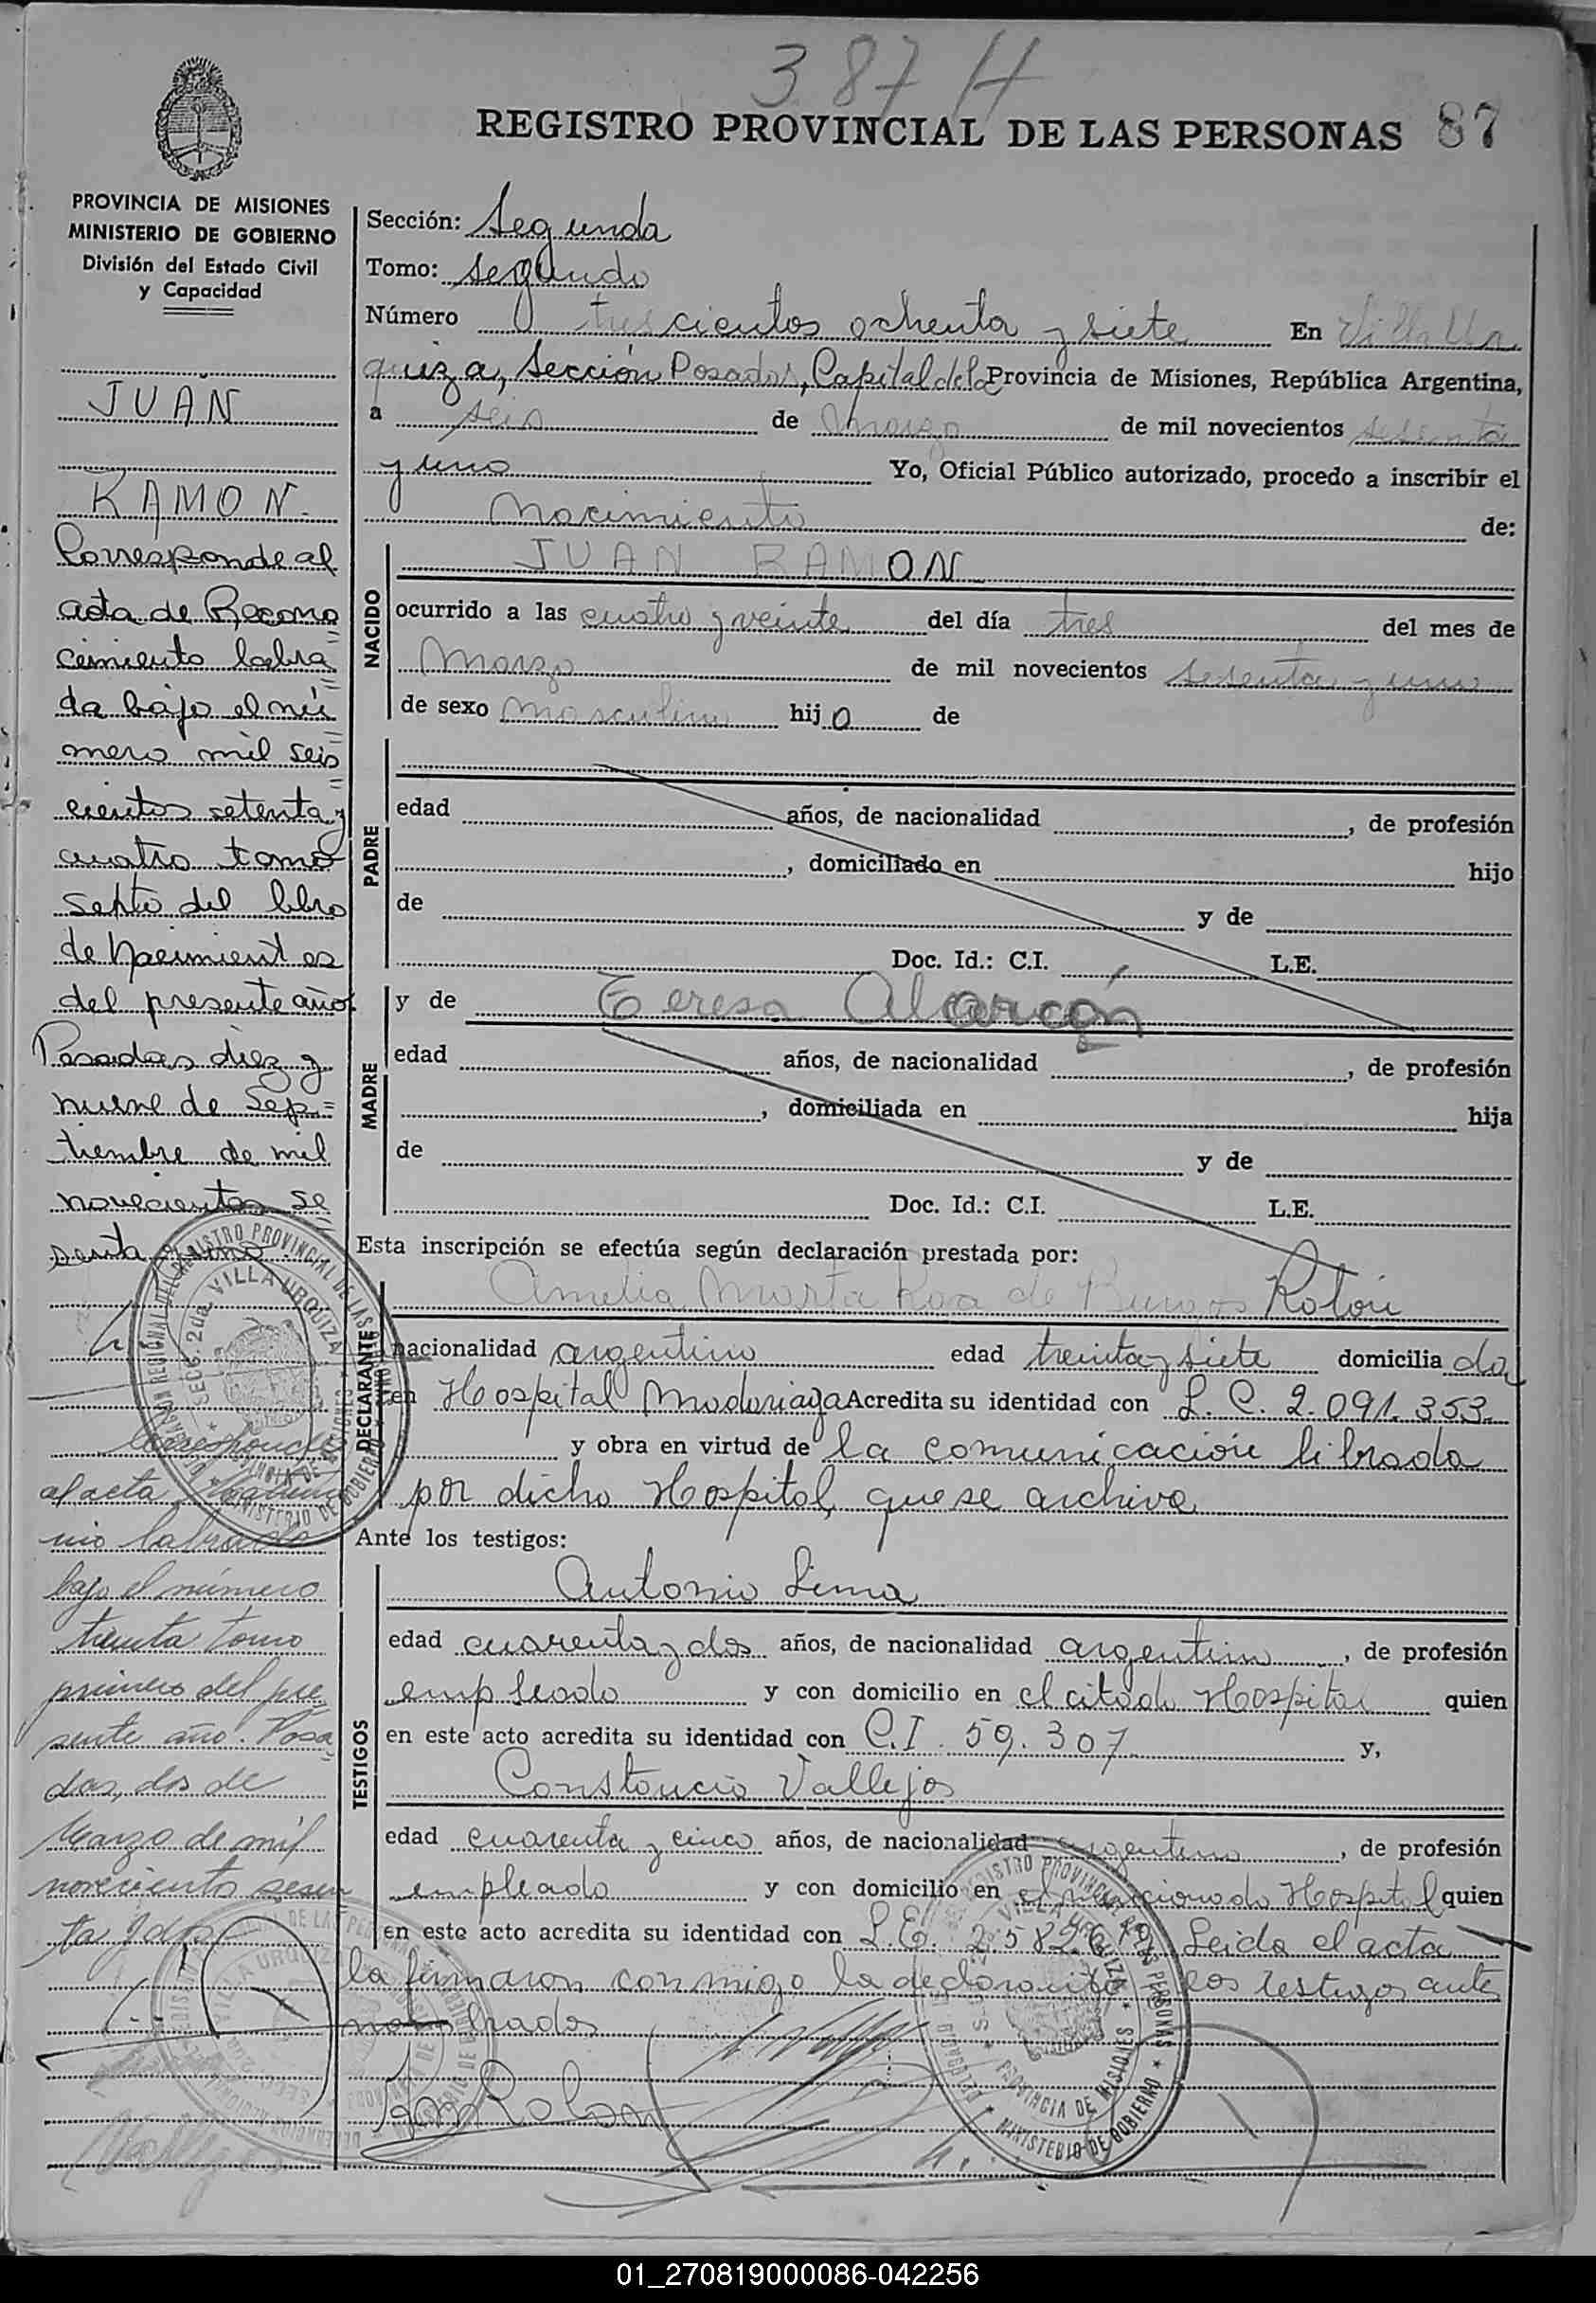 387 H
REGISTRO PROVINCIAL DE LAS PERSONAS 87
PROVINCIA DE MISIONES
MINISTERIO DE GOBIERNO
División del Estado Civil
y Capacidad
JUAN
RAMON.
Corresponde al
acta de Recono
cimiento labra
da bajo el nú
mero mil seis
cientos setenta y
cuatro tomo
septo del libro
de Nacimientos
del presente año
Posadas diez y
nueve de Sep=
tiembre de mil
novecientos se
senta y uno.
Corresponde
al acta
nio labrado
bajo el número
treinta tomo
primero del pre
sente año. Posa
das, dos de
Marzo de mil
novecientos sesen
ta y dos
Sección: Segunda
Tomo: segundo
Número trescientos ochenta y siete En Villa Ur
quiza, Sección Posadas, Capital de la Provincia de Misiones, República Argentina,
a seis de marzo de mil novecientos sesenta
y uno Yo, Oficial Público autorizado, procedo a inscribir el
Nacimiento de:
NACIDO
JUAN RAMON
ocurrido a las cuatro y veinte del día tres del mes de
Marzo de mil novecientos sesenta y uno
de sexo masculino hijo de
PADRE
edad años, de nacionalidad , de profesión
, domiciliado en hijo
de y de
Doc. Id.: C.I. L.E.
MADRE
y de Teresa Alarcón
edad años, de nacionalidad , de profesión
, domiciliada en hija
de y de
Doc. Id.: C.I. L.E.
Esta inscripción se efectúa según declaración prestada por:
DECLARANTE
Amelia Marta Roa de Burgos Rolón
nacionalidad argentino edad treinta y siete domiciliada
en Hospital Madariaga Acredita su identidad con L. C. 2.091.353
y obra en virtud de la comunicación librada
por dicho Hospital, que se archiva
Ante los testigos:
TESTIGOS
Antonio Lima
edad cuarenta y dos años, de nacionalidad argentino, de profesión
empleado y con domicilio en el citado Hospital quien
en este acto acredita su identidad con C.I. 59.307 y,
Constancio Vallejos
edad cuarenta y cinco años, de nacionalidad argentino, de profesión
empleado y con domicilio en el mencionado Hospital quien
en este acto acredita su identidad con L.E. Leida el acta
la firmaron conmigo la declarante y los testigos ante
nombrados
Rolon
DELEGACION REGIONAL DEL REGISTRO PROVINCIAL DE LAS PERSONAS
SECC. 2da. VILLA URQUIZA
PROVINCIA DE MISIONES
MINISTERIO DE GOBIERNO
01_270819000086-042256